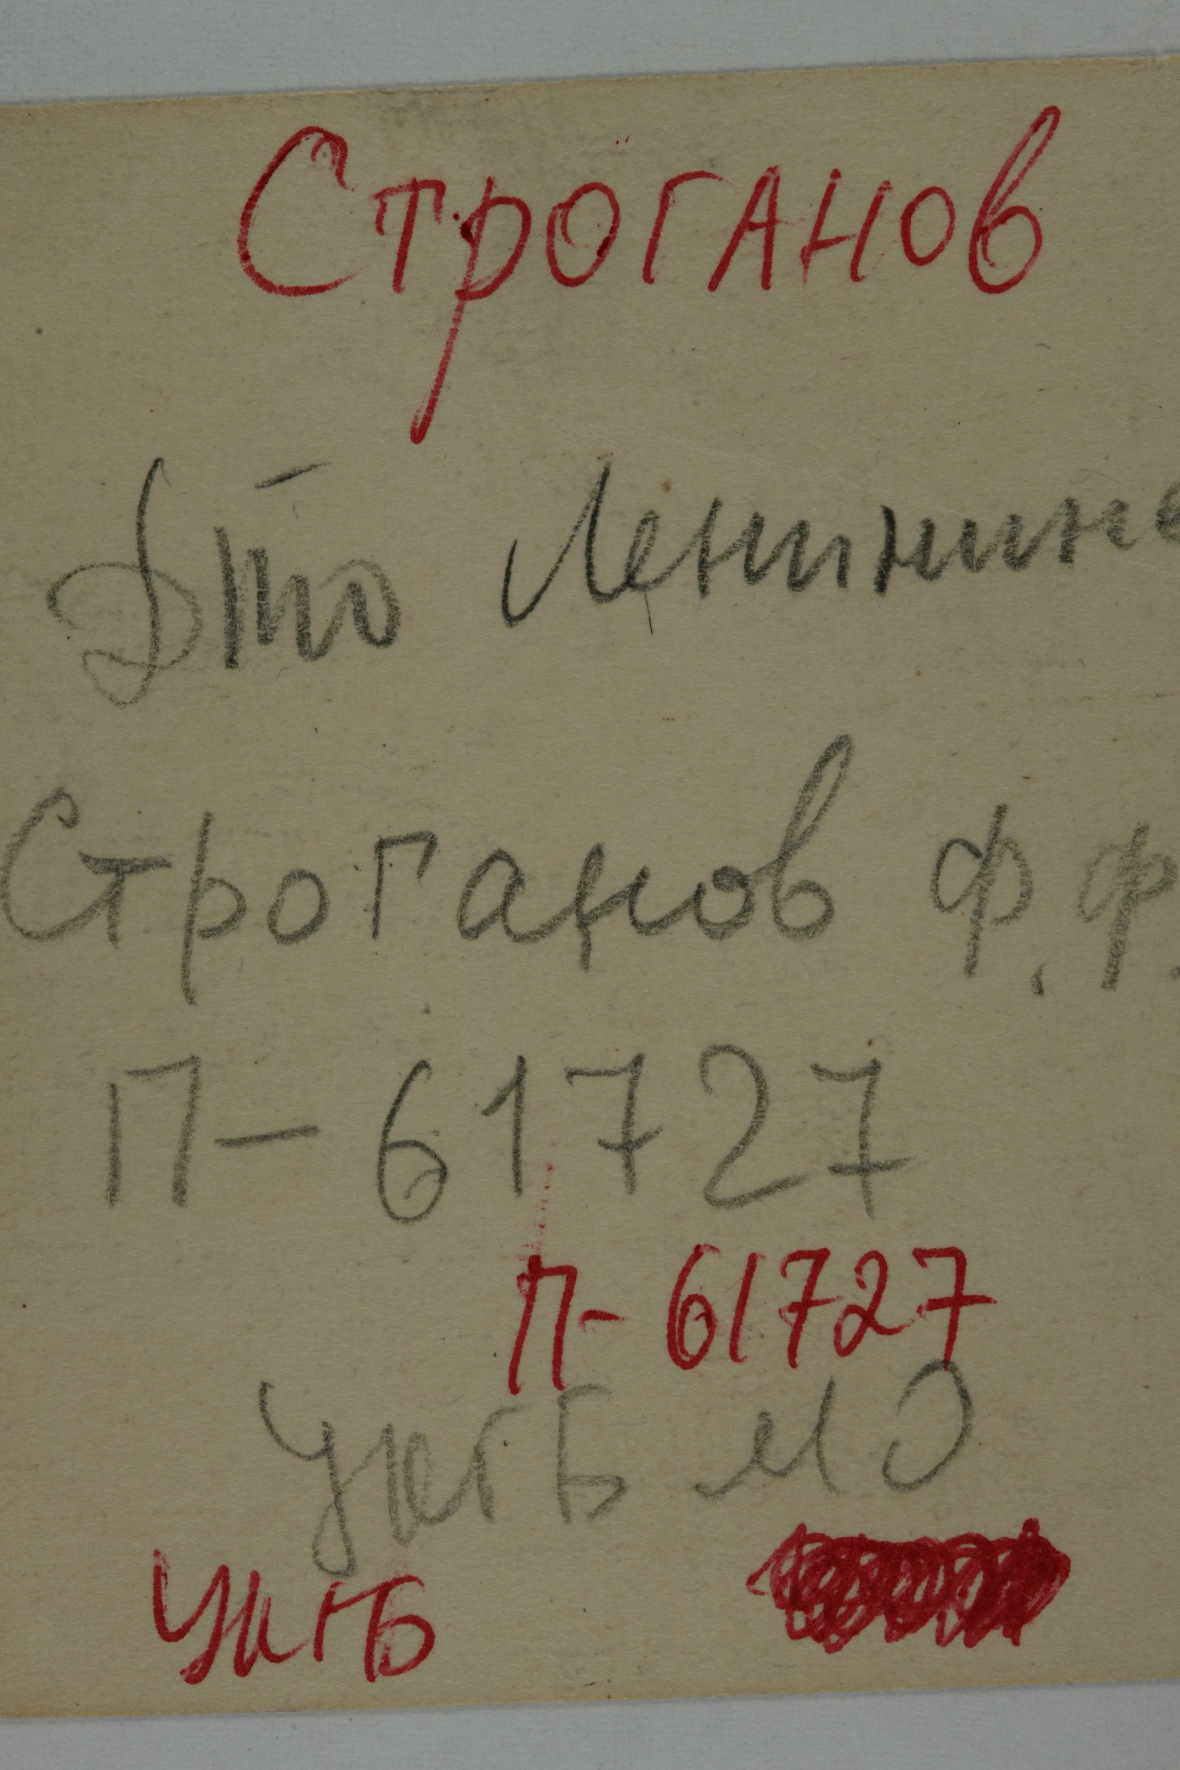 Строганов
Дто Ленинне
Строганов Ф.Ф.
П-61727
П-61727
УКГБ МО
УКГБ